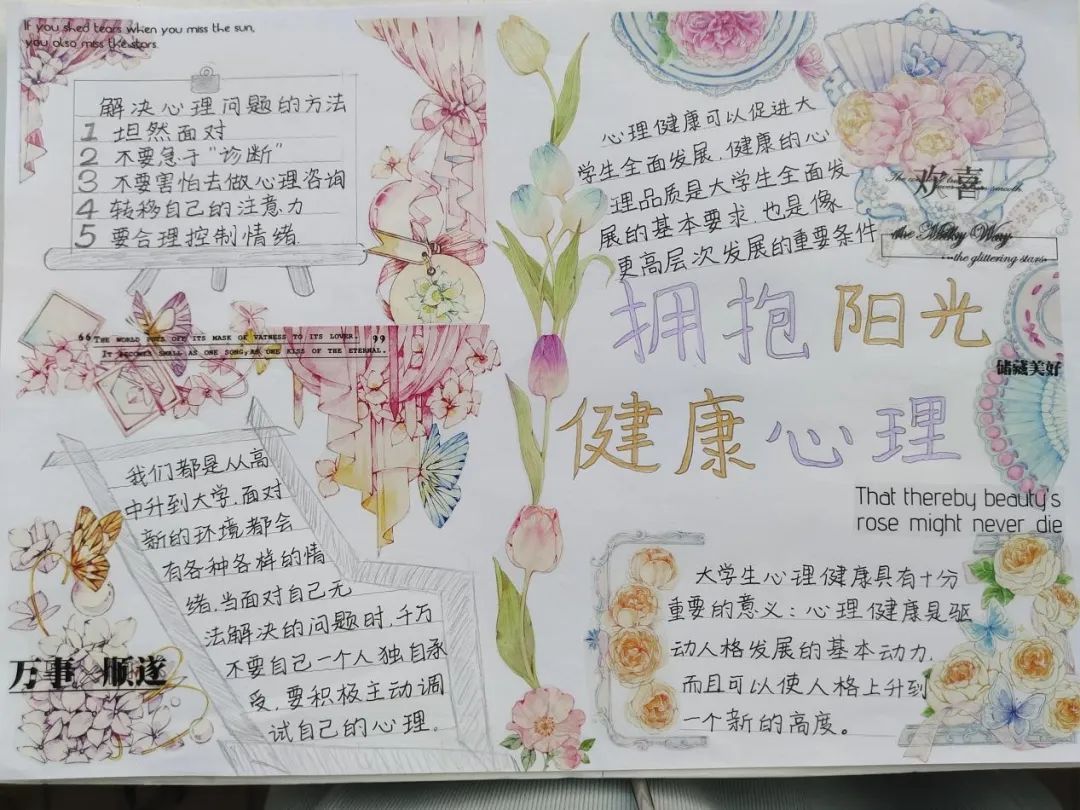 If you shed tears when you miss the sun,
you also miss the stars.
解决心理问题的方法
1 坦然面对
2 不要急于“诊断”
3 不要害怕去做心理咨询
4 转移自己的注意力
5 要合理控制情绪.
“THE WORLD PUTS OFF ITS MASK OF VASTNESS TO ITS LOVER.
IT BECOMES SMALL AS ONE SONG, AS ONE KISS OF THE ETERNAL.”
我们都是从高
中升到大学,面对
新的环境都会
有各种各样的情
绪.当面对自己无
法解决的问题时,千万
不要自己一个人独自承
受,要积极主动调
试自己的心理.
万事顺遂
心理健康可以促进大
学生全面发展.健康的心
理品质是大学生全面发
展的基本要求.也是像
更高层次发展的重要条件
欢喜
smooth
the Milky Way,
the glittering stars
拥抱阳光
储藏美好
健康心理
That thereby beauty's
rose might never die
大学生心理健康具有十分
重要的意义:心理健康是驱
动人格发展的基本动力,
而且可以使人格上升到
一个新的高度。